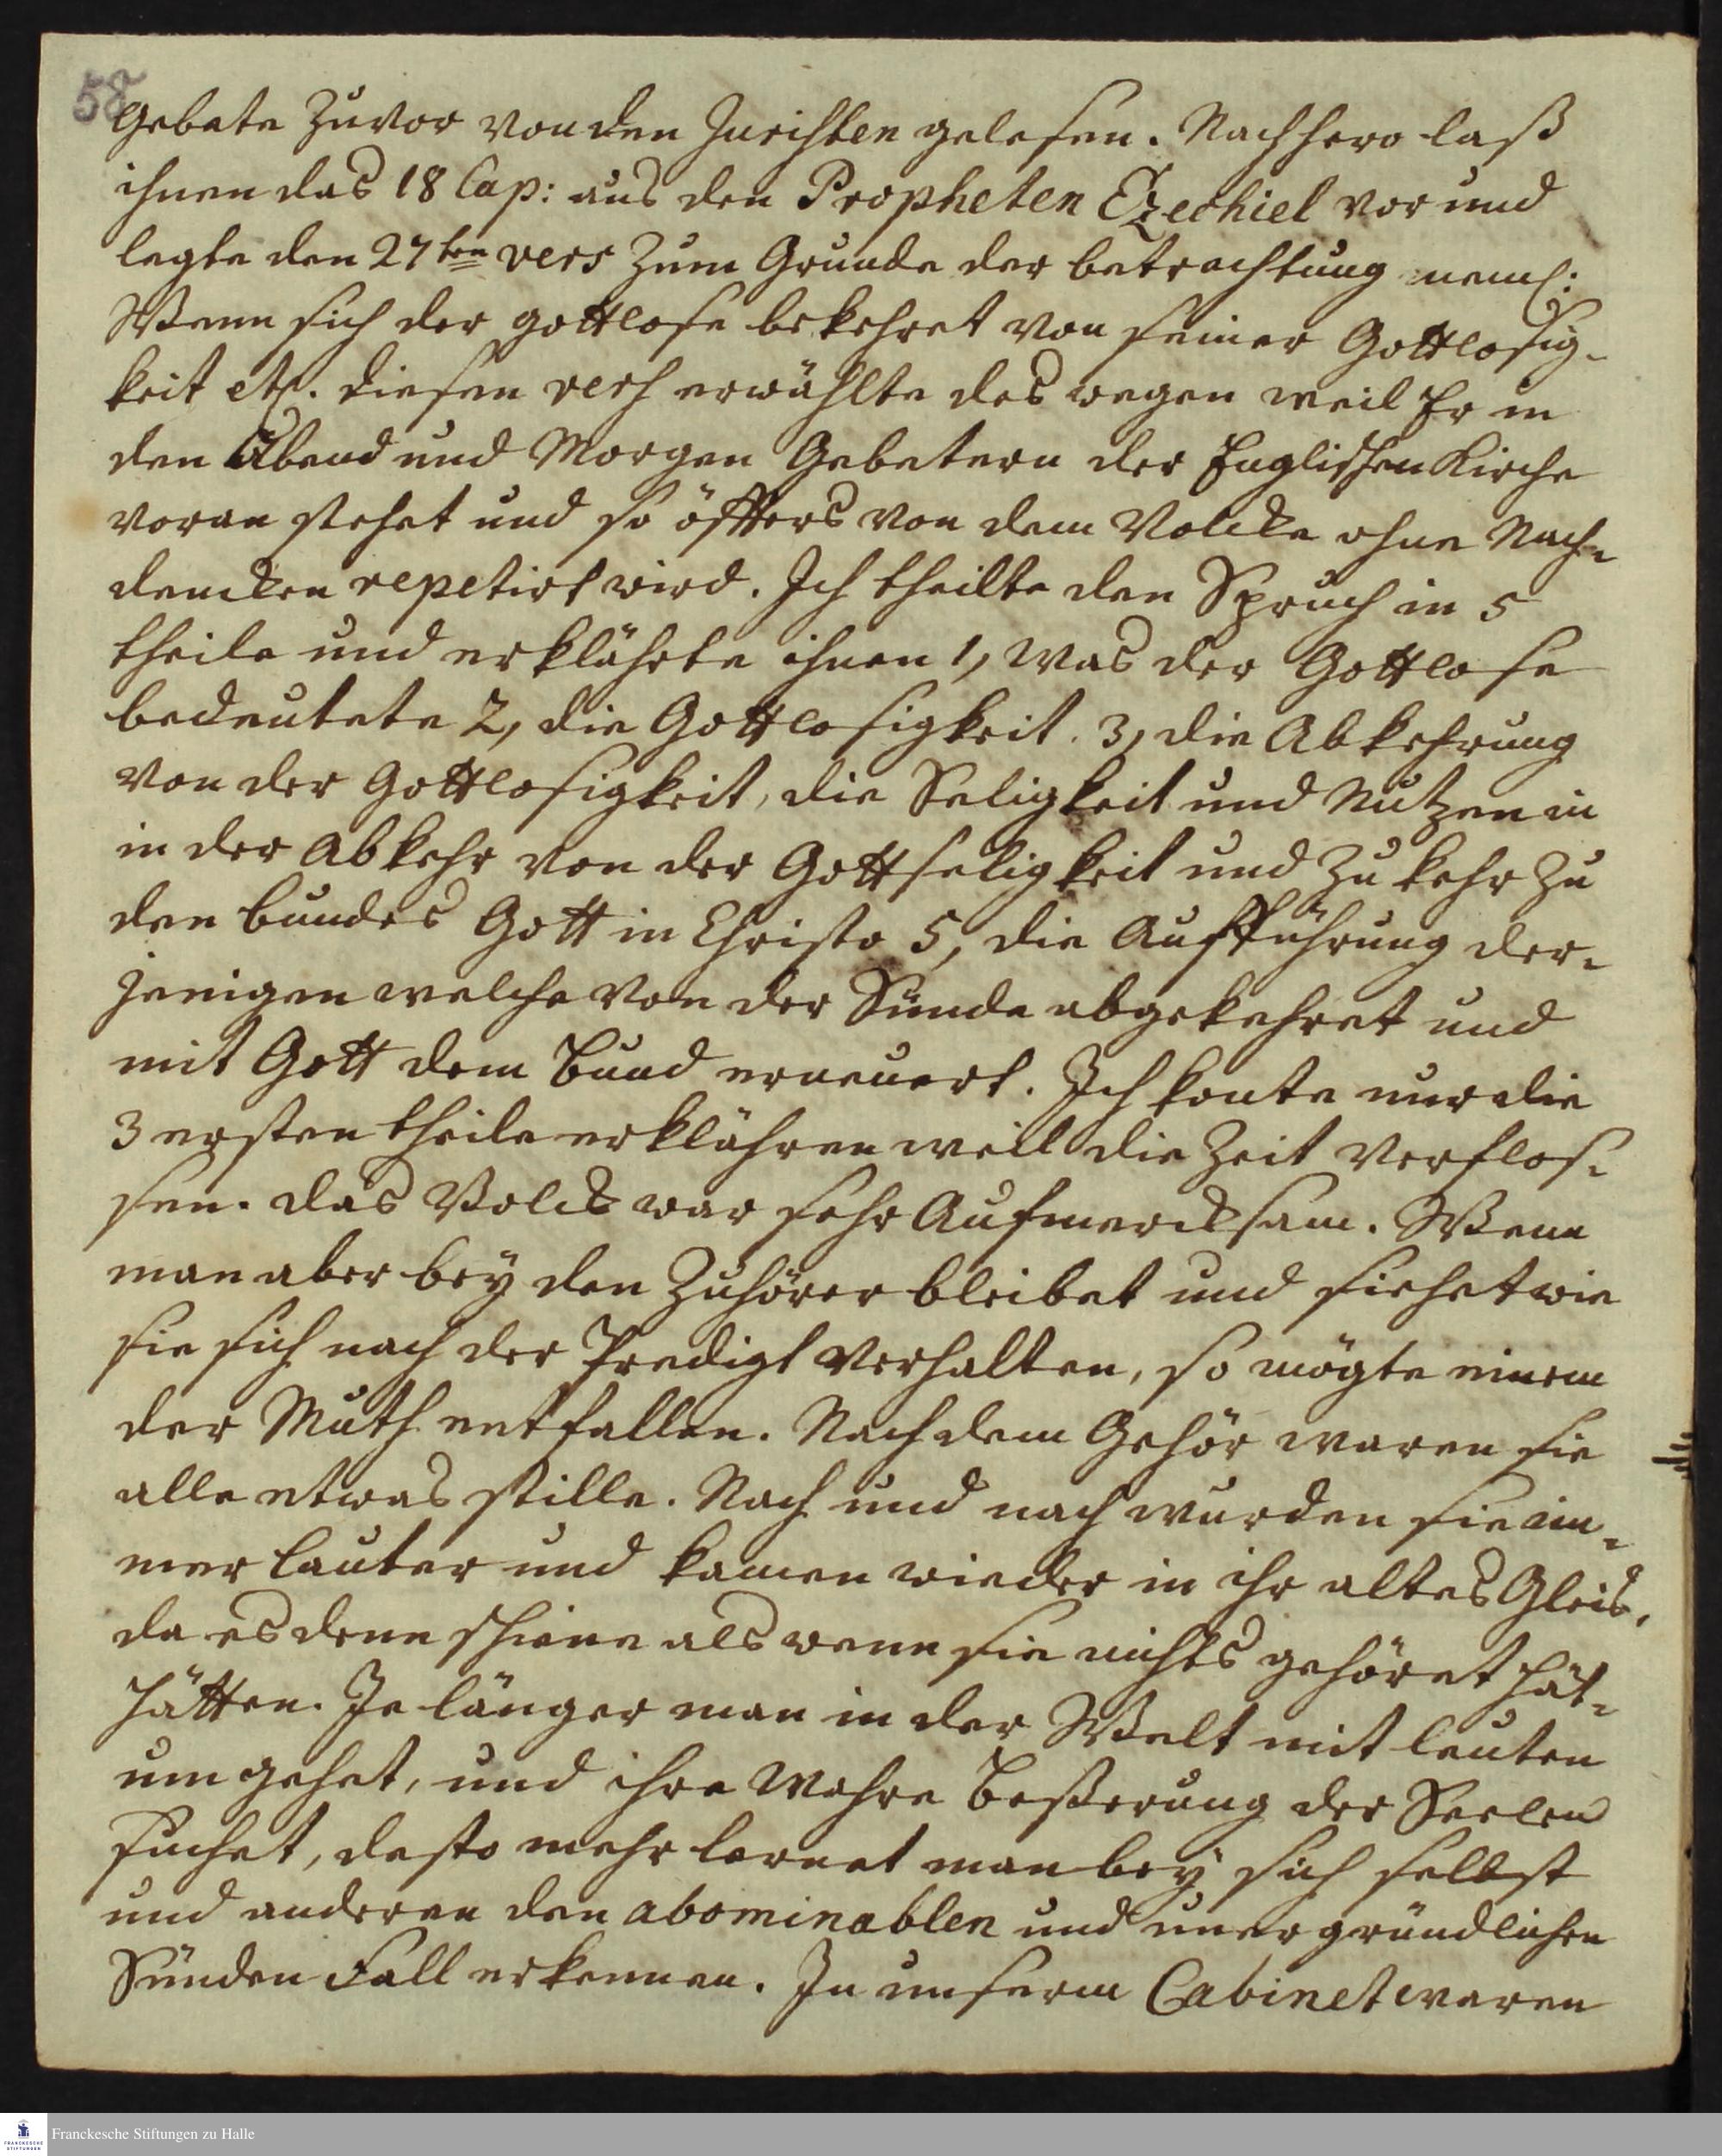 58
Gebate zuvor von den Juristen gelesen. Nachhero laß
ihnen das 18 Cap: aus den Propheten Ezechiel vor und
legte den 27ten vers zum Grunde der betrachtung neml:
Wenn sich der gottlose bekehret von seiner Gottlosig-
keit etc. diesen verß erwählte deswegen weil Er in
den Abend und Morgen Gebetern der Englischen Kirche
voran stehet und so öffters von dem Volcke ohne Nach-
dencken repetirt wird. Ich theilte den Spruch in 5
theile und erklährte ihnen 1, was der Gottlose
bedeutete 2, die Gottlosigkeit. 3, die Abkehrung
von der Gottlosigkeit, die Seligkeit und Nutzen in
in der Abkehr von der Gottseligkeit und Zukehr zu
den bundes Gott in Christo 5, die Aufführung der-
jenigen welche von der Sünde abgekehret und
mit Gott dem Bund erneuert. Ich konte nur die
3 ersten theile erklähren weil die Zeit verflos-
sen. das Volck war sehr Aufmercksam. Wenn
man aber bey den Zuhörer bleibet und siehet wie
sie sich nach der Predigt verhalten, so mögte einem
der Muth entfallen. Nach dem Gehör waren sie
alle etwas stille. Nach und nach wurden sie im-
mer lauter und kamen wieder in ihr altes Gleis,
da es denn schiene als wenn sie nichts gehöret hät-
hätten. Je länger man in der Welt mit leuten
um gehet, und ihre wahre Beßerung der Seelen
suchet, desto mehr lernet man bey sich selbst
und anderen den abominablen und unergründlichen
Sünden Fall erkennen. In unserm Cabinet waren
Franckesche Stiftungen zu Halle